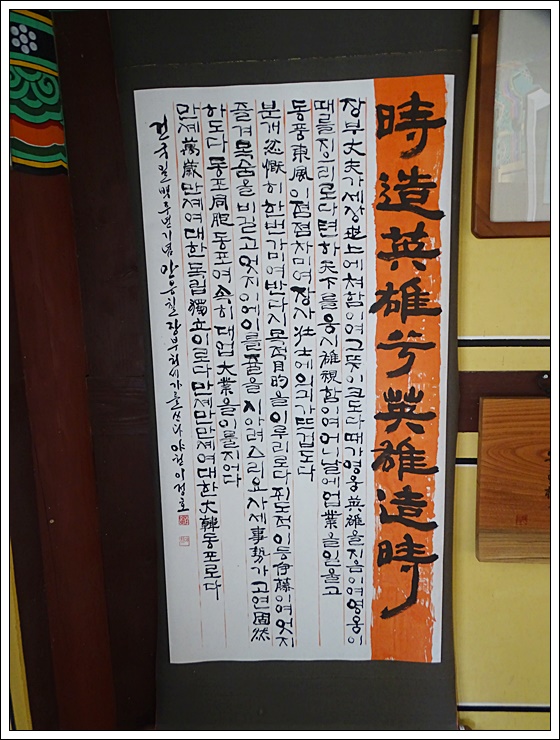 時造英雄兮英雄造時
장부丈夫가세상世上에쳐함이여그뜻이크도다때가영웅英雄을지음이여영웅이
때를지으리로다텬하天下를웅시雄視함이여어니날에업業을일울고
동풍東風이점점차미여장사壯士에의긔가뜨겁도다
분개忿慨히한번가미여반다시목적目的을이루리로다쥐도적이등伊藤이여엇지
즐겨목숨을비길고엇지이에이를줄을시아려스리오사세事勢가고연固然
하도다동포同胞동포여속히대업大業을이룰지어다
만세萬歲만세여대한독립獨立이로다만세만만세여대한大韓동포로다
건국일백주년기념 안응칠 장부처세가를쓰다 야천 이정호